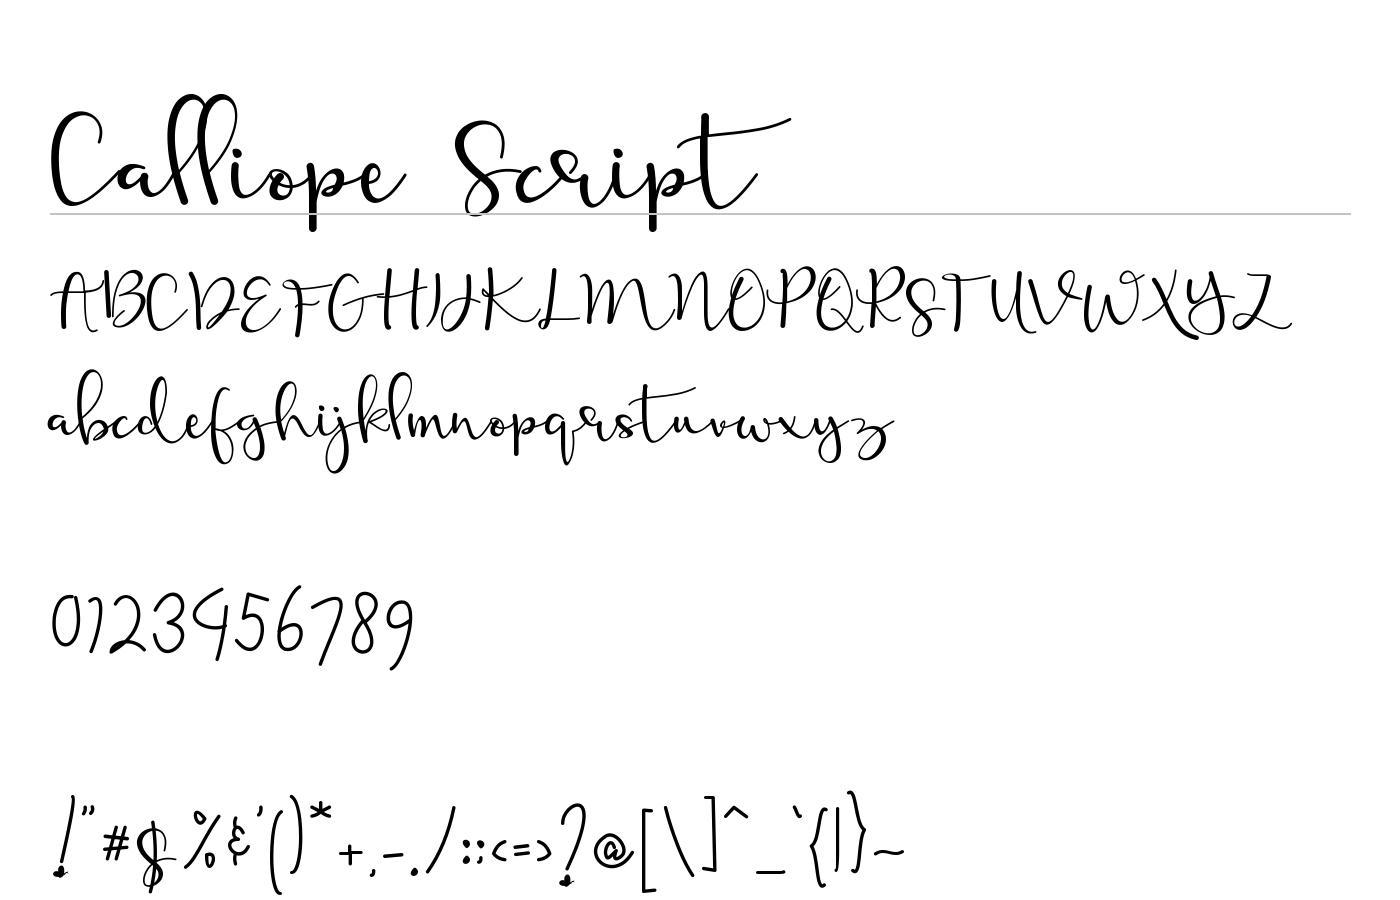 Calliope Script
ABCDEFGHIJKLMNOPQRSTUVWXYZ
abcdefghijklmnopqrstuvwxyz
0123456789
!"#$%&'()*+,-./:;<=>?@[\]^_`{|}~